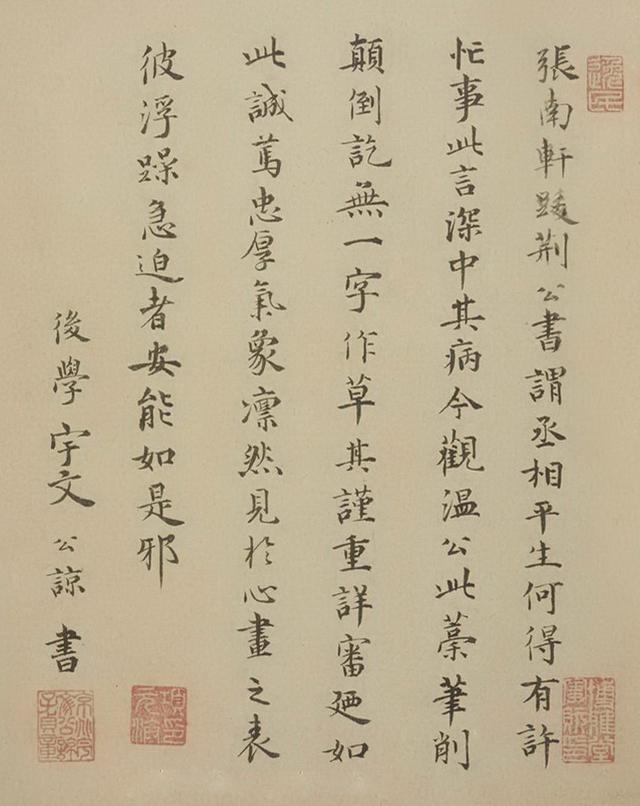 張南軒跋荆公書謂丞相平生何得有許
忙事此言深中其病今觀温公此藁筆削
顛倒訖無一字作草其謹重詳審廼如
此誠篤忠厚氣象凛然見於心畫之表
彼浮躁急迫者安能如是邪
後學宇文公諒書